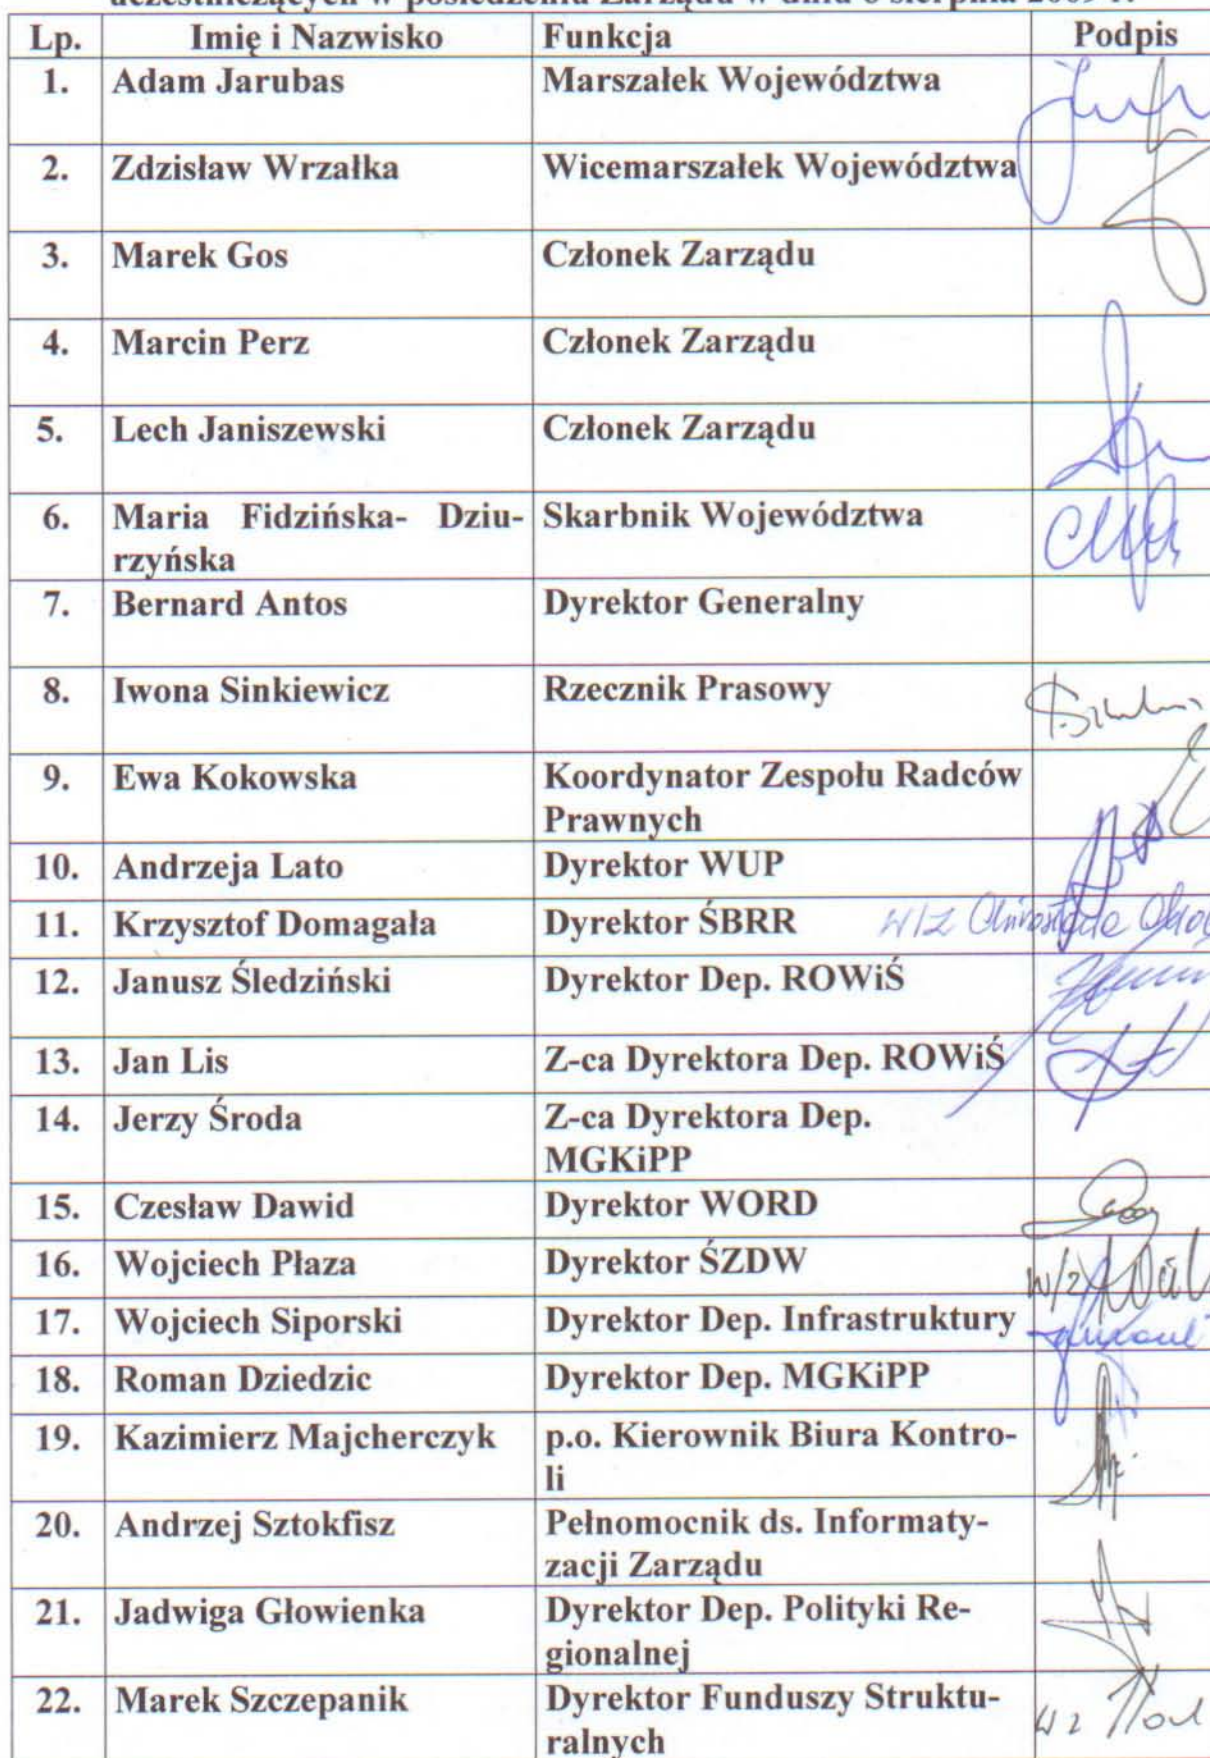 uczestniczących w posiedzeniu Zarządu w dniu 6 sierpnia 2009 r.
Lp. Imię i Nazwisko Funkcja Podpis
1. Adam Jarubas Marszałek Województwa
2. Zdzisław Wrzałka Wicemarszałek Województwa
3. Marek Gos Członek Zarządu
4. Marcin Perz Członek Zarządu
5. Lech Janiszewski Członek Zarządu
6. Maria Fidzińska- Dziu- Skarbnik Województwa
rzyńska
7. Bernard Antos Dyrektor Generalny
8. Iwona Sinkiewicz Rzecznik Prasowy
9. Ewa Kokowska Koordynator Zespołu Radców
Prawnych
10. Andrzeja Lato Dyrektor WUP
11. Krzysztof Domagała Dyrektor ŚBRR W/Z
12. Janusz Śledziński Dyrektor Dep. ROWiŚ
13. Jan Lis Z-ca Dyrektora Dep. ROWiŚ
14. Jerzy Środa Z-ca Dyrektora Dep.
MGKiPP
15. Czesław Dawid Dyrektor WORD
16. Wojciech Płaza Dyrektor ŚZDW w/z
17. Wojciech Siporski Dyrektor Dep. Infrastruktury
18. Roman Dziedzic Dyrektor Dep. MGKiPP
19. Kazimierz Majcherczyk p.o. Kierownik Biura Kontro-
li
20. Andrzej Sztokfisz Pełnomocnik ds. Informaty-
zacji Zarządu
21. Jadwiga Głowienka Dyrektor Dep. Polityki Re-
gionalnej
22. Marek Szczepanik Dyrektor Funduszy Struktu- wz
ralnych